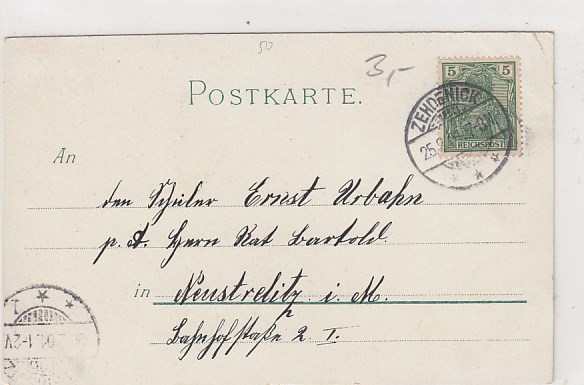 50
3,-
POSTKARTE.
5 5
REICHSPOST
ZEHDENICK
25.
7-8N.
An
den Schüler Ernst Urbahn
p. A. Herrn Rat Bartold.
in Neustrelitz i. M.
Bahnhofstraße 2 I.
1-2V.